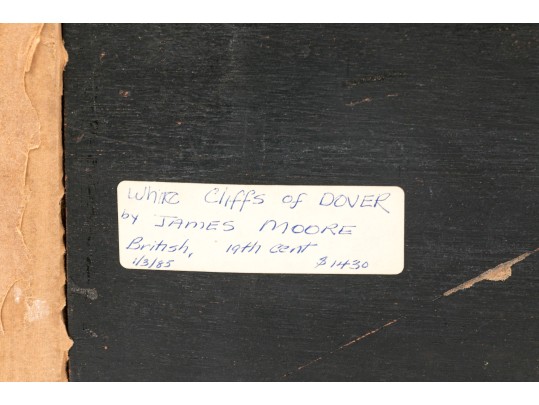 White Cliffs of DOVER
by JAMES MOORE
British, 19th Cent
1/3/85 $1430